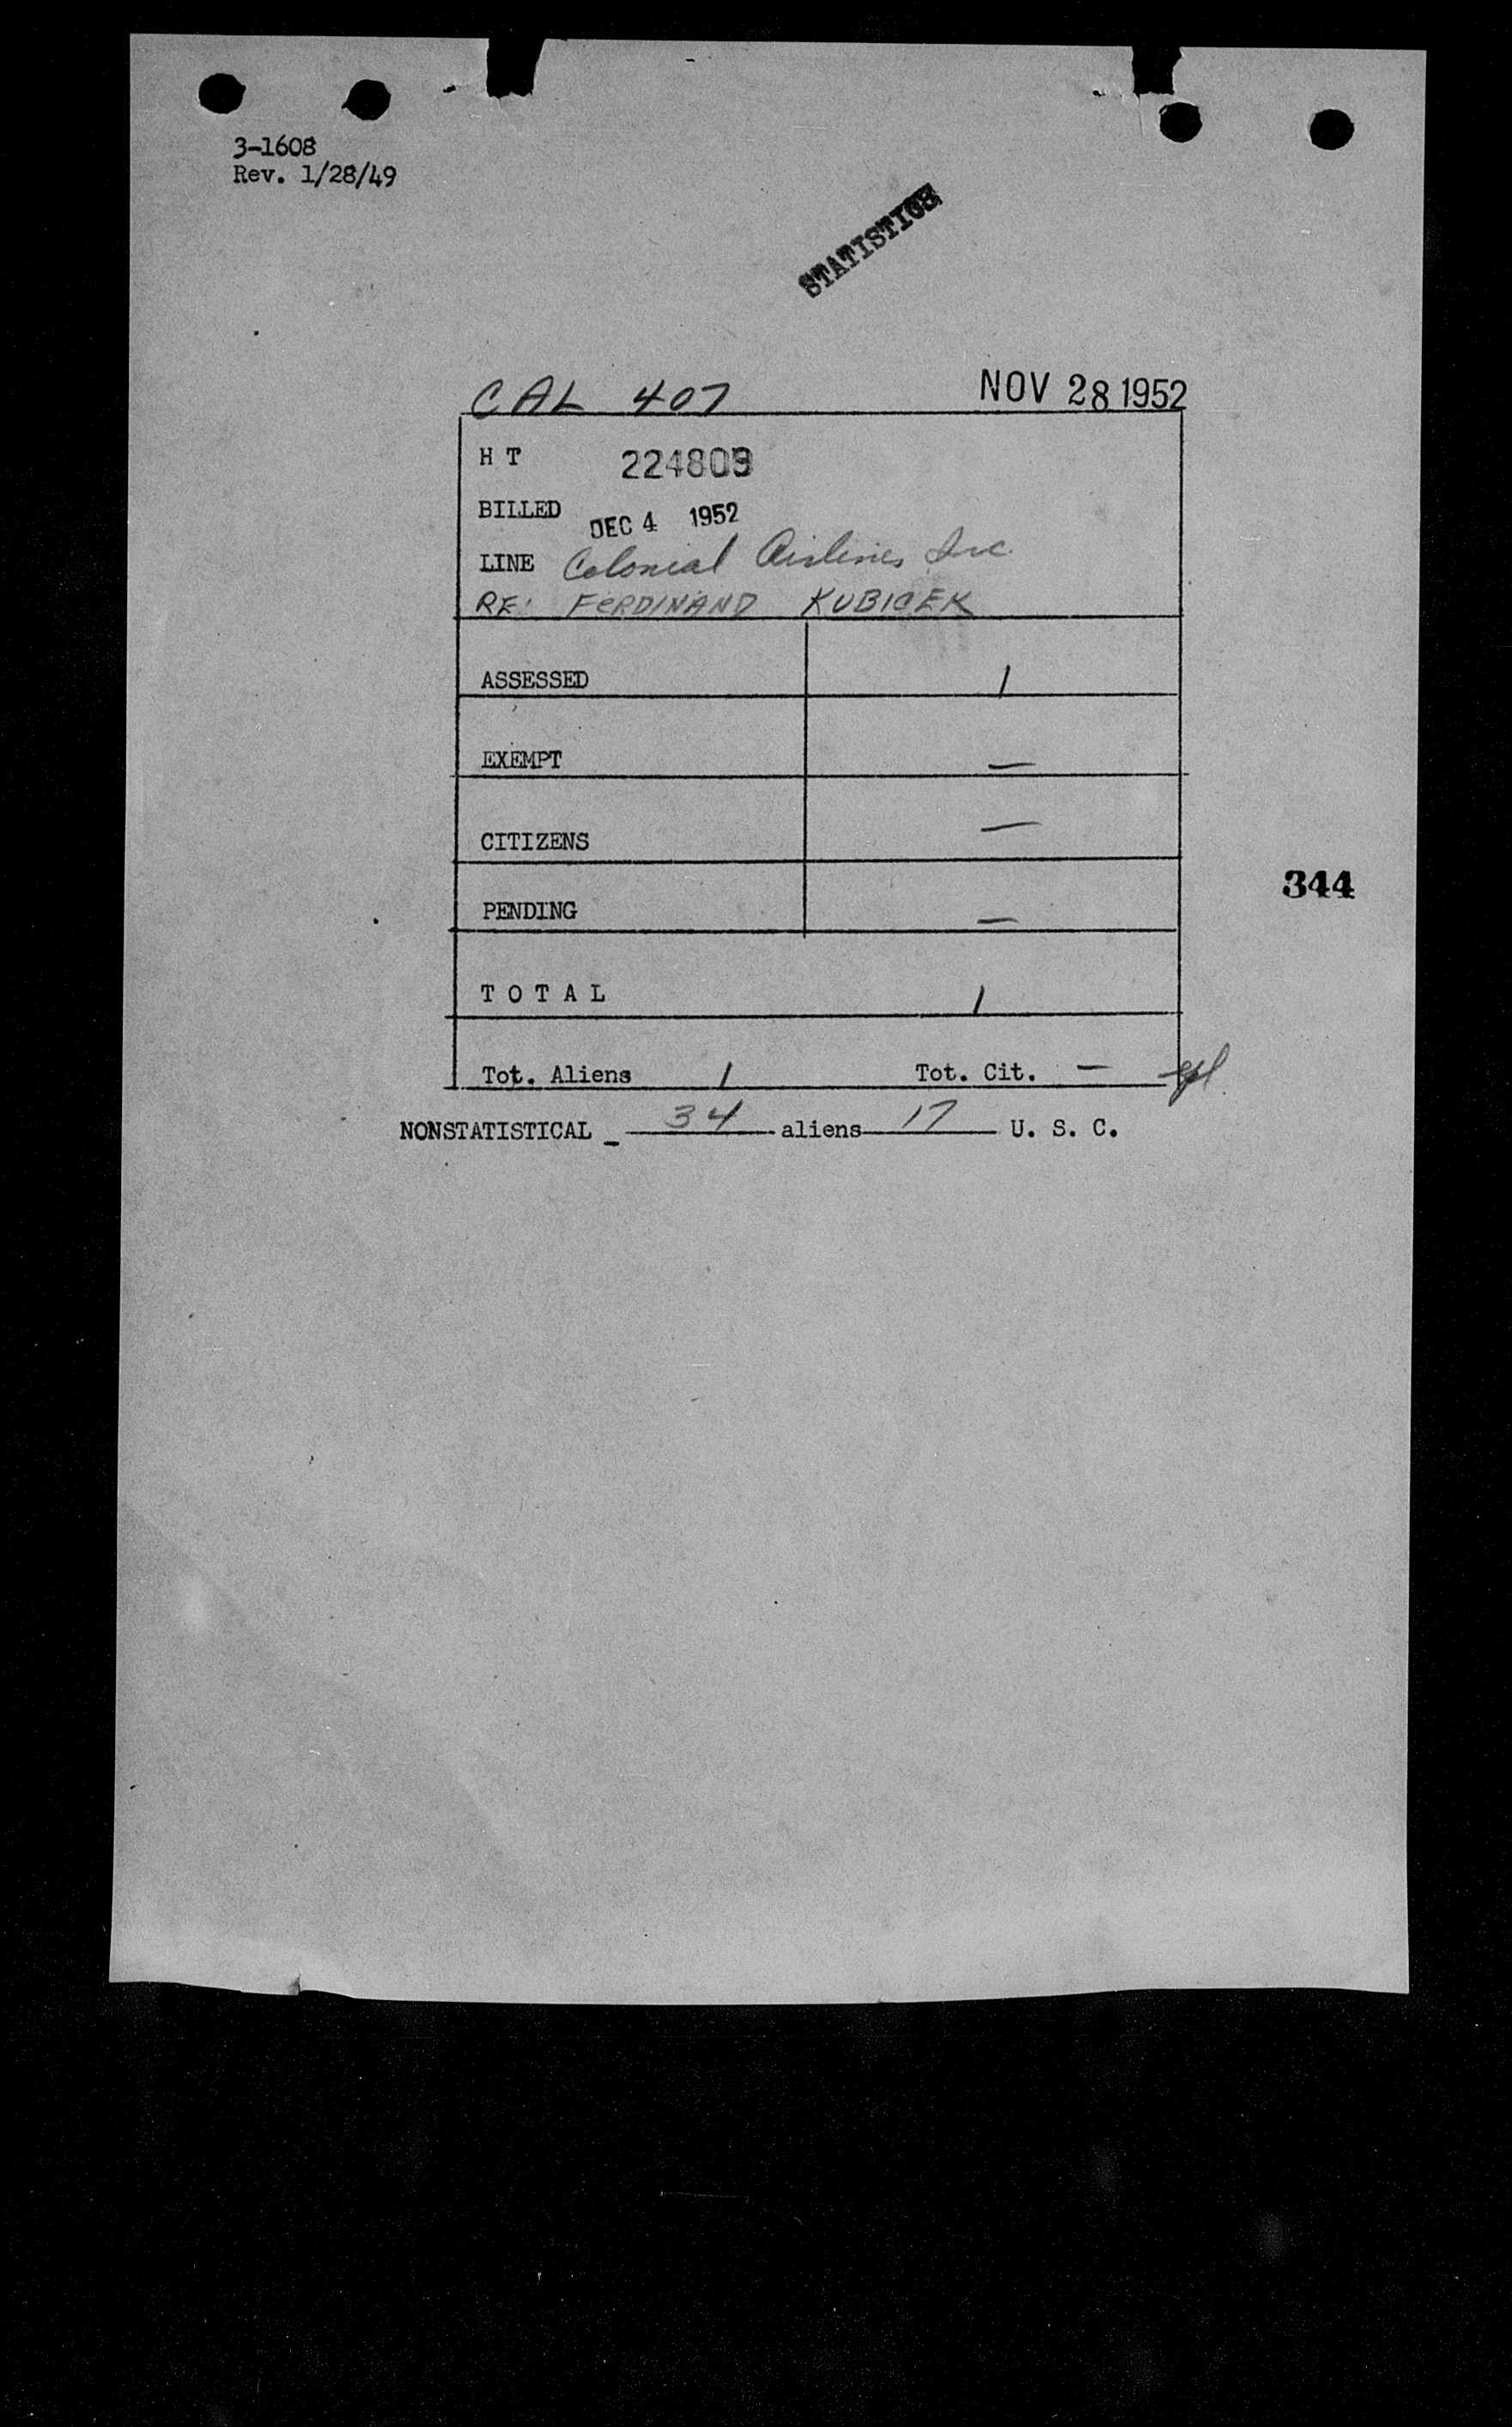 3-1608
Rev. 1/28/49
STATISTICS
CAL 407 NOV 28 1952
H T 224809
BILLED DEC 4 1952
LINE Colonial Airlines Inc.
RE: FERDINAND KUBICEK
ASSESSED 1
EXEMPT —
CITIZENS —
344
PENDING —
T O T A L 1
Tot. Aliens 1 Tot. Cit. —
NONSTATISTICAL - 34 aliens 17 U. S. C.